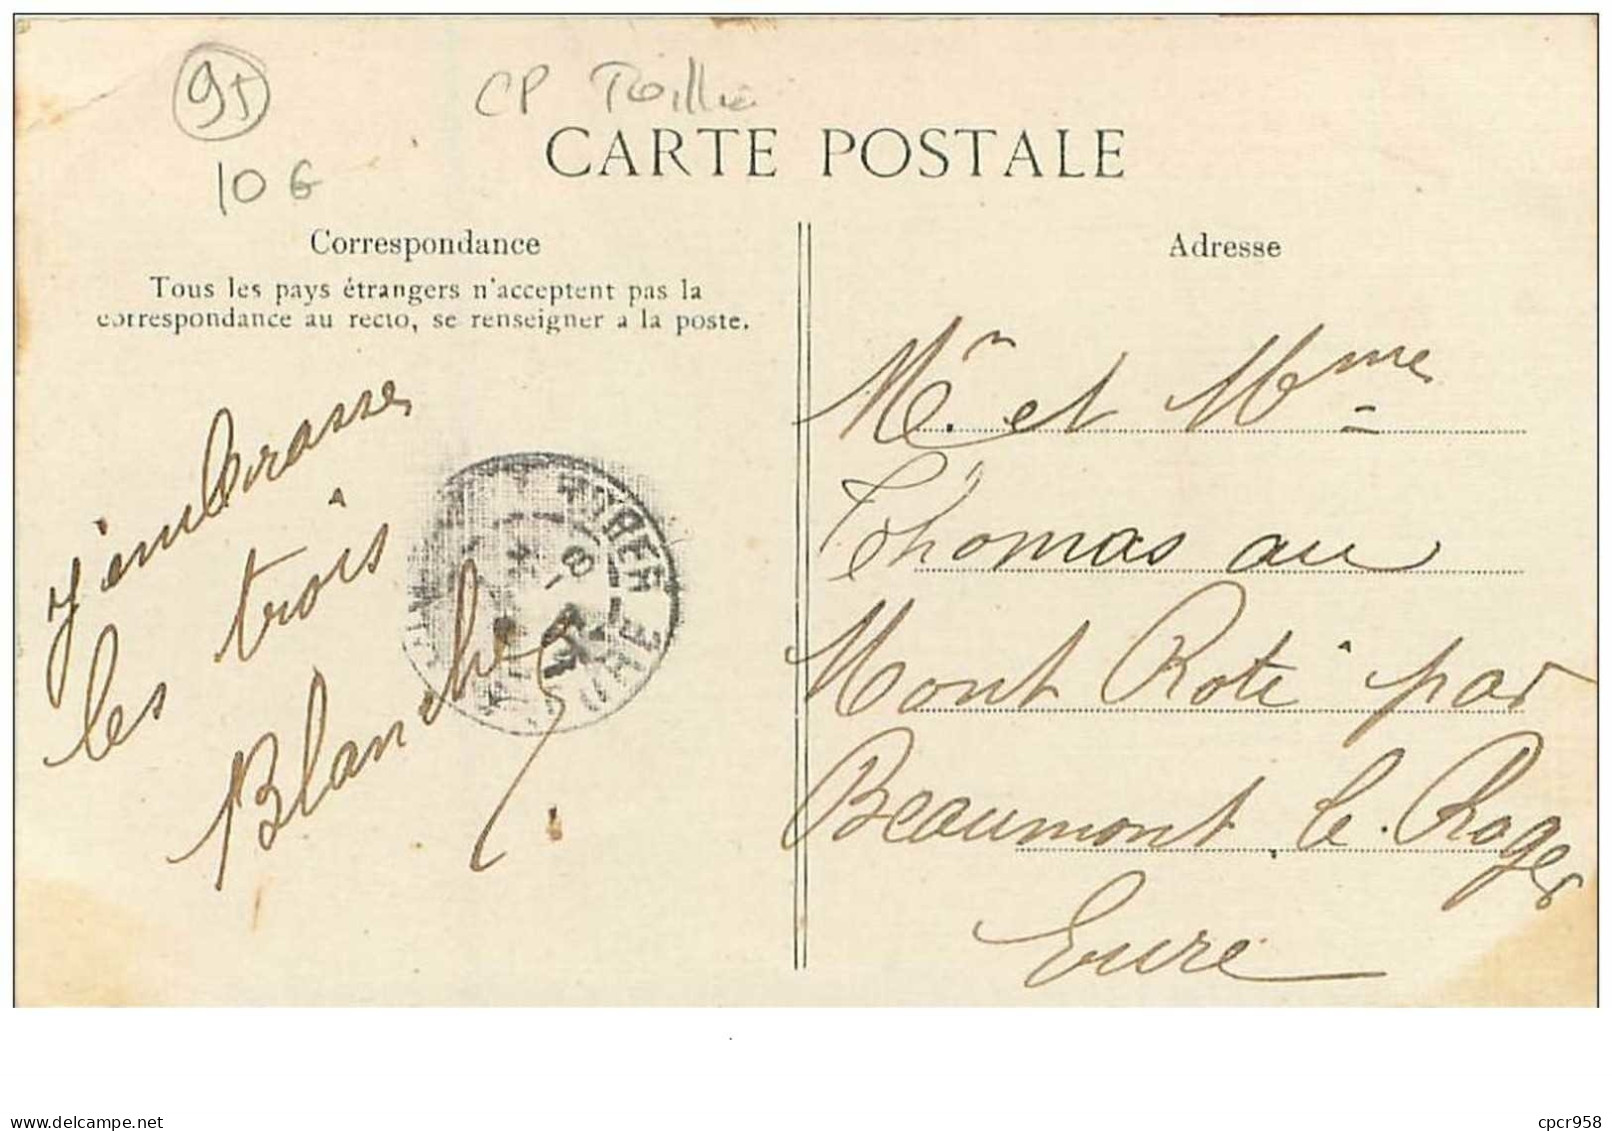 95
10 G
CP Toillée
CARTE POSTALE
Correspondance
Tous les pays étrangers n'acceptent pas la
correspondance au recto, se renseigner a la poste.
j'embrasse
les trois
Blanche
ROGER
EURE
Adresse
Mr et Mme
Thomas au
Mont Roté par
Beaumont le Roger
Eure
www.delcampe.net
cpcr958